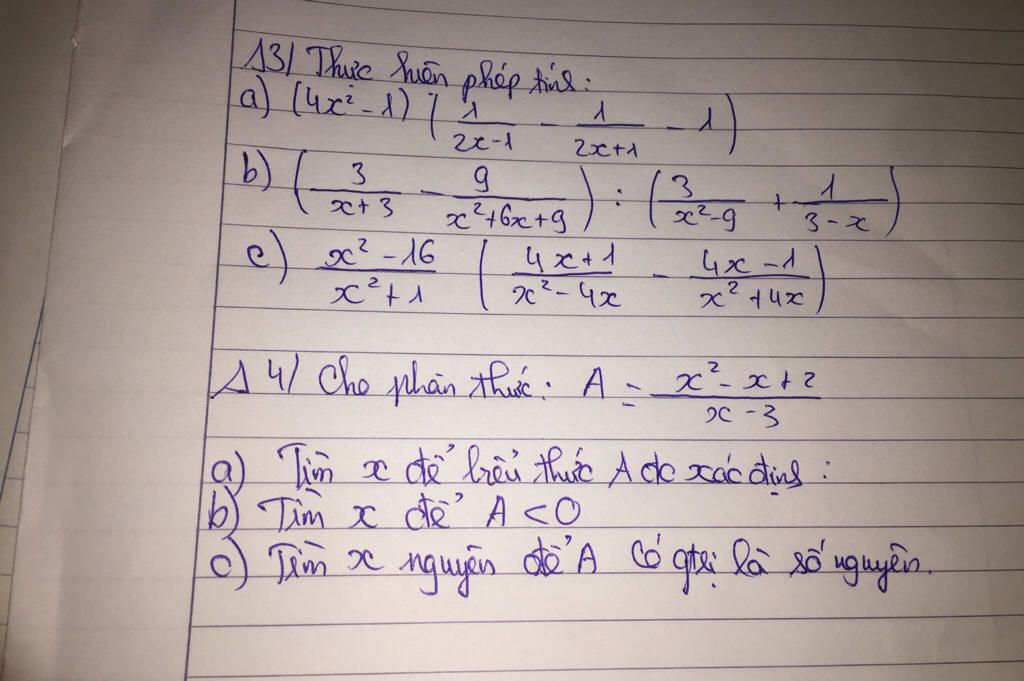 13/ Thực hiện phép tính:
a) (4x² - 1) (1/(2x-1) - 1/(2x+1) - 1)
b) (3/(x+3) - 9/(x²+6x+9)) : (3/(x²-9) + 1/(3-x))
c) (x²-16)/(x²+1) ((4x+1)/(x²-4x) - (4x-1)/(x²+4x))
14/ Cho phân thức: A = (x²-x+2)/(x-3)
a) Tìm x để biểu thức A đc xác định:
b) Tìm x để A < 0
c) Tìm x nguyên để A có gtrị là số nguyên.